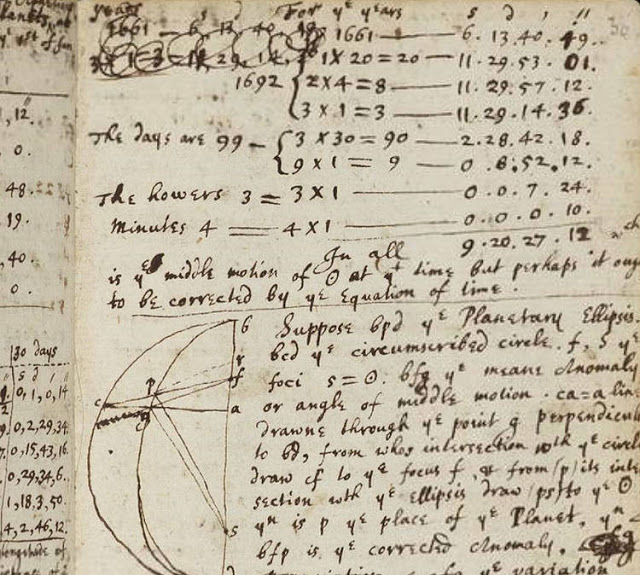 years s d ' " For yᵉ yeares s d ' "
1661 — 6. 13. 40. 1661 — 6. 13. 40. 49.
3 × 1 = 3 = 11. 29. 14. 1 × 20 = 20 — 11. 29. 53. 01.
1692 { 2 × 4 = 8 — 11. 29. 57. 12.
3 × 1 = 3 — 11. 29. 14. 36.
The days are 99 — { 3 × 30 = 90 — 2. 28. 42. 18.
9 × 1 = 9 — 0. 8. 52. 12.
The howers 3 = 3 × 1 — 0. 0. 7. 24.
Minutes 4 = 4 × 1 — 0. 0. 0. 10.
In all 9. 20. 27. 12 wᶜʰ
is yᵉ middle motion of ☉ at yᵗ time but perhaps it oug
to be corrected by yᵉ Equation of time.
Suppose bpd yᵉ Planetary Ellipsis.
bcd yᵉ circumscribed circle. f, s yᵉ
foci s = ☉. bfg yᵉ meane Anomaly
or angle of middle motion. ca = a line
drawne through yᵉ point g perpendicu
to bd, from whos intersection wᵗʰ yᵉ circle
draw cf to yᵉ focus f, & from /p/ its inter
section wᵗʰ yᵉ Ellipsis draw /ps/ to yᵉ ☉
yⁿ is p yᵉ place of yᵉ Planet, yⁿ
bfp is yᵉ corrected Anomaly,
yᵉ variation
b
f
p
c
a
s
d
,12.
0.
48.
19.
,40.
0.
30 days
s d ' "
0, 1, 0, 14
0, 2, 29, 34
0, 15, 43, 16.
0, 29, 34, 6.
1, 18, 3, 50.
4, 2, 46, 12.
longitude of